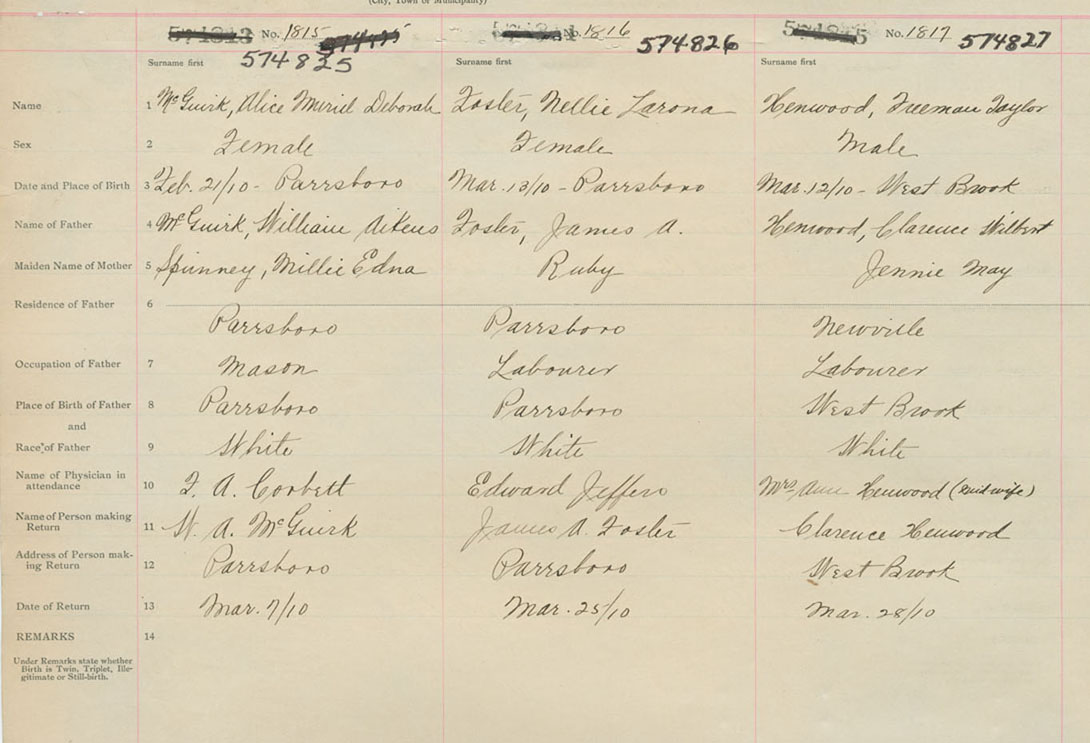 (City, Town or Municipality)
No. 1815 No. 1816 574826 No. 1817 574827
574825
Surname first Surname first Surname first
Name 1 McGuirk, Alice Muriel Deborah Foster, Nellie Larona Henwood, Freeman Taylor
Sex 2 Female Female Male
Date and Place of Birth 3 Feb. 21/10 - Parrsboro Mar. 13/10 - Parrsboro Mar. 12/10 - West Brook
Name of Father 4 McGuirk, William Aikens Foster, James A. Henwood, Clarence Wilbert
Maiden Name of Mother 5 Spinney, Millie Edna Ruby Jennie May
Residence of Father 6
Parrsboro Parrsboro Newville
Occupation of Father 7 Mason Labourer Labourer
Place of Birth of Father 8 Parrsboro Parrsboro West Brook
and
Race of Father 9 White White White
Name of Physician in
attendance 10 F. A. Corbett Edward Jeffers Mrs. Ann Henwood (midwife)
Name of Person making
Return 11 W. A. McGuirk James A. Foster Clarence Henwood
Address of Person mak-
ing Return 12 Parrsboro Parrsboro West Brook
Date of Return 13 Mar. 7/10 Mar. 25/10 Mar. 28/10
REMARKS 14
Under Remarks state whether
Birth is Twin, Triplet, Ille-
gitimate or Still-birth.